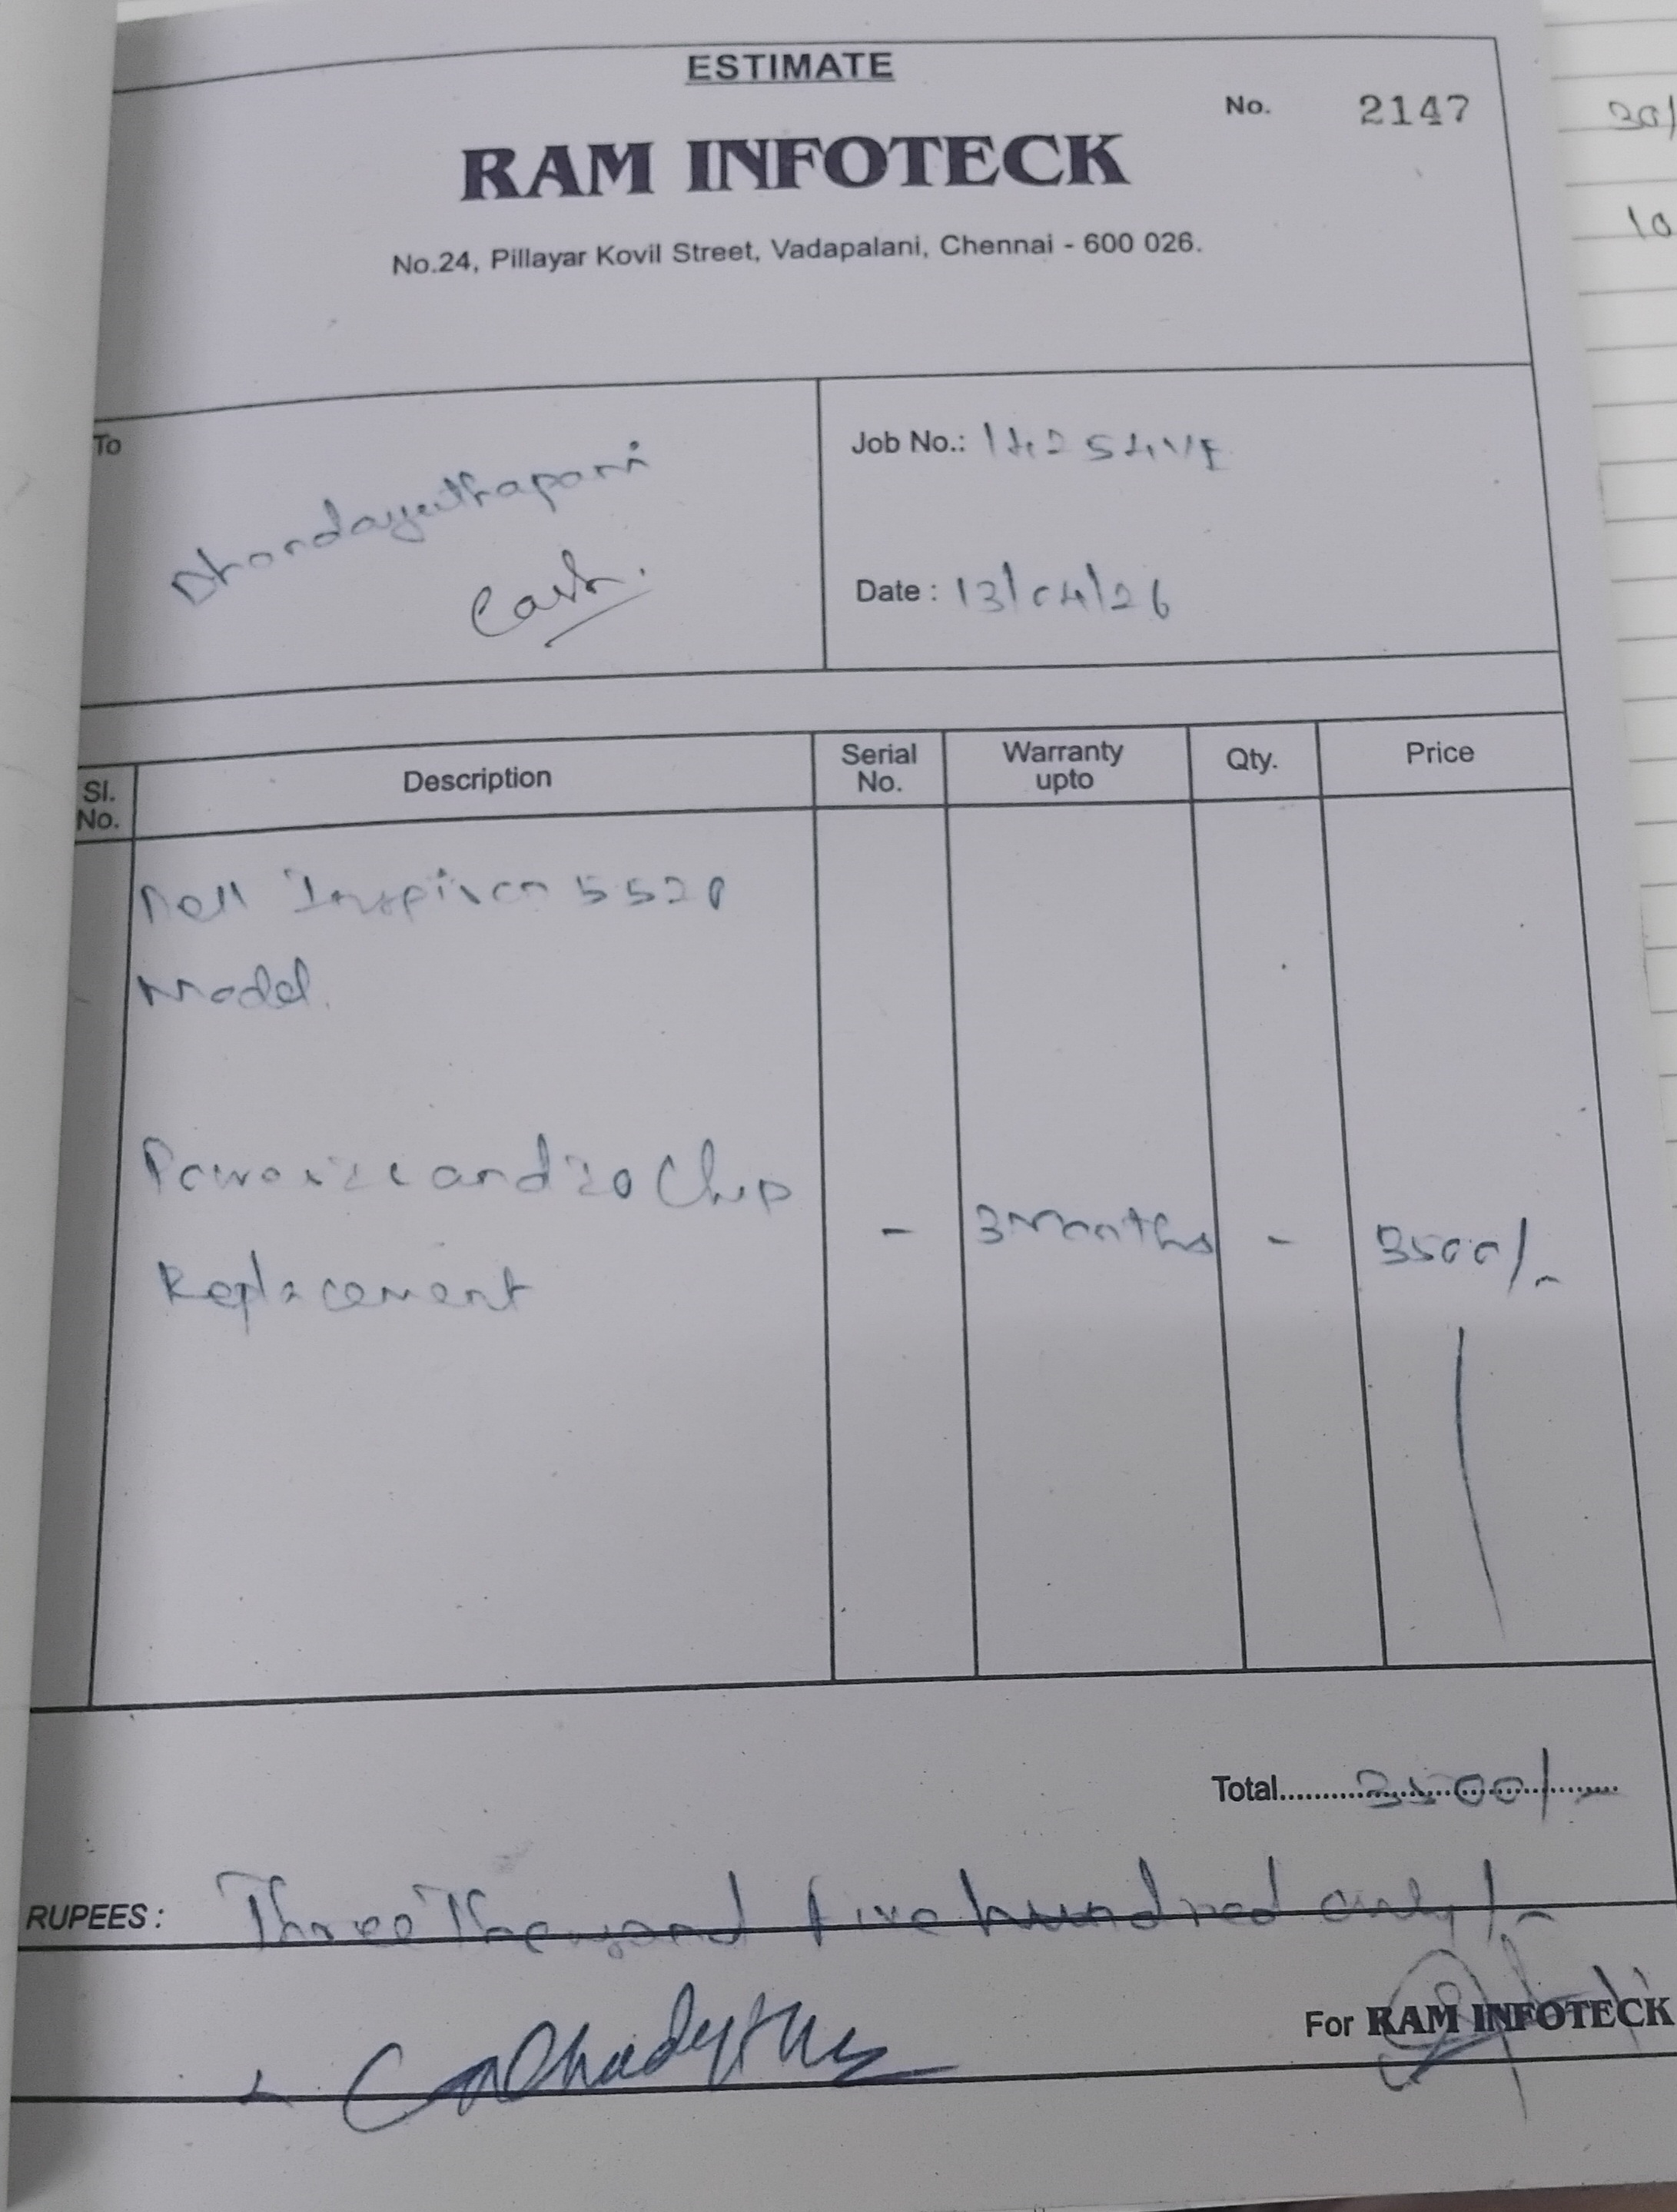 ESTIMATE
No. 2147
RAM INFOTECK
No.24, Pillayar Kovil Street, Vadapalani, Chennai - 600 026.
To
Dhandayuthapani
Cash.
Job No.:
Date : 13/04/26
Sl. No. Description Serial No. Warranty upto Qty. Price
Dell Inspiron 5520
Model.
Power IC and IO Chip
Replacement - 3 Months - 3500/-
Total 3500/-
RUPEES : Three Thousand five hundred only/-
For RAM INFOTECK